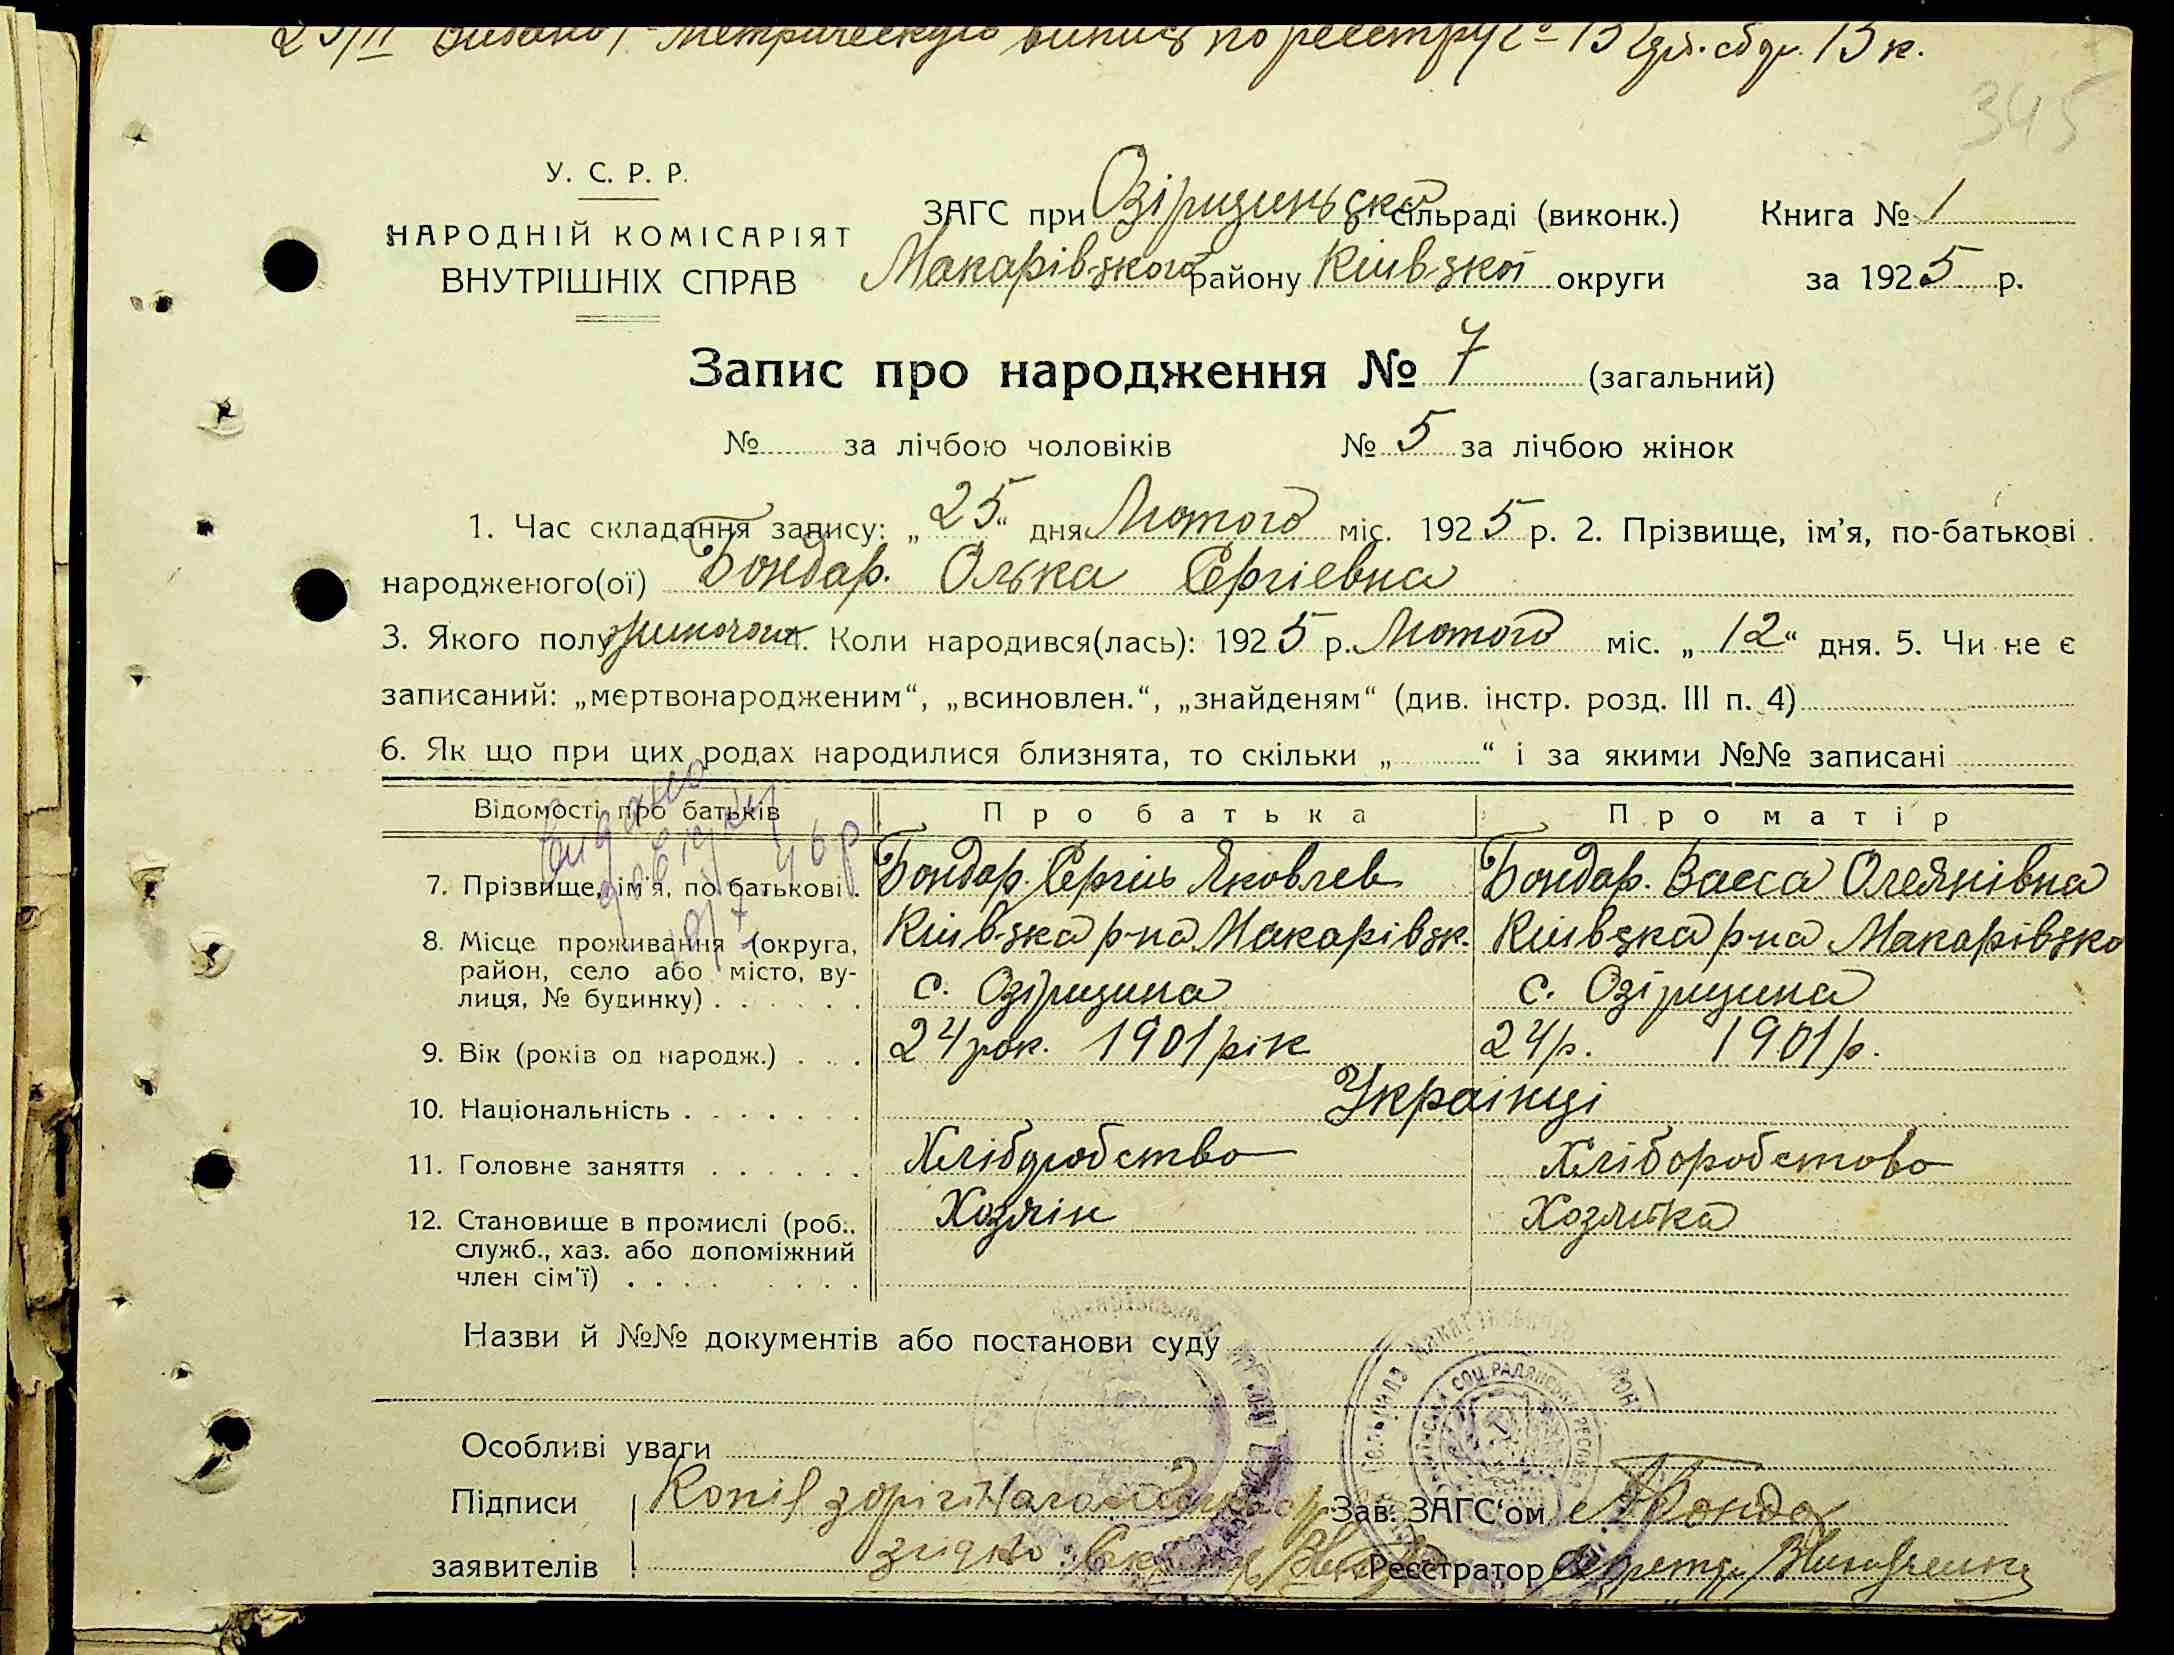 метрическую выпись по реестру № 13 к.
345
У. С. Р. Р.
НАРОДНІЙ КОМІСАРІЯТ
ВНУТРІШНІХ СПРАВ
ЗАГС при Озірщиньска сільраді (виконк.) Книга № 1
Макарівзкого району Киівзкоі округи за 1925 р.
Запис про народження № 7 (загальний)
№ за лічбою чоловіків № 5 за лічбою жінок
1. Час складання запису: „25“ дня Лютого міс. 1925 р. 2. Прізвище, ім’я, по-батькові
народженого(ої) Бондар. Олька Сергієвна
3. Якого полу жиночого 4. Коли народився(лась): 1925 р. Лютого міс. „12“ дня. 5. Чи не є
записаний: „мертвонародженим“, „всиновлен.“, „знайденям“ (див. інстр. розд. III п. 4)
6. Як що при цих родах народилися близнята, то скільки „ “ і за якими №№ записані
Видано
довідку
10/7 46 р
Відомості про батьків Про батька Про матір
7. Прізвище, ім’я, по батькові. Бондар. Сергіь Яковлев Бондар. Васса Олеянівна
8. Місце проживання (округа, Киівзка р-на Макарівзк. Киівзка р-на Макарівзко
район, село або місто, ву- с. Озірщина с. Озірщина
лиця, № будинку)
9. Вік (років од народж.) 24 рок. 1901 рік 24 р. 1901 р.
10. Національність Украінці
11. Головне заняття Хліборобство Хліборобство
12. Становище в промислі (роб., Хозяін Хозяйка
служб., хаз. або допоміжний
член сім’ї)
Назви й №№ документів або постанови суду
СОЦ. РАДЯНСЬКА РЕСПУБ
Особливі уваги
Підписи Копія з орігіналом Зав. ЗАГС‘ом Бондар
заявителів згідно: Секретар Реєстратор Секретар